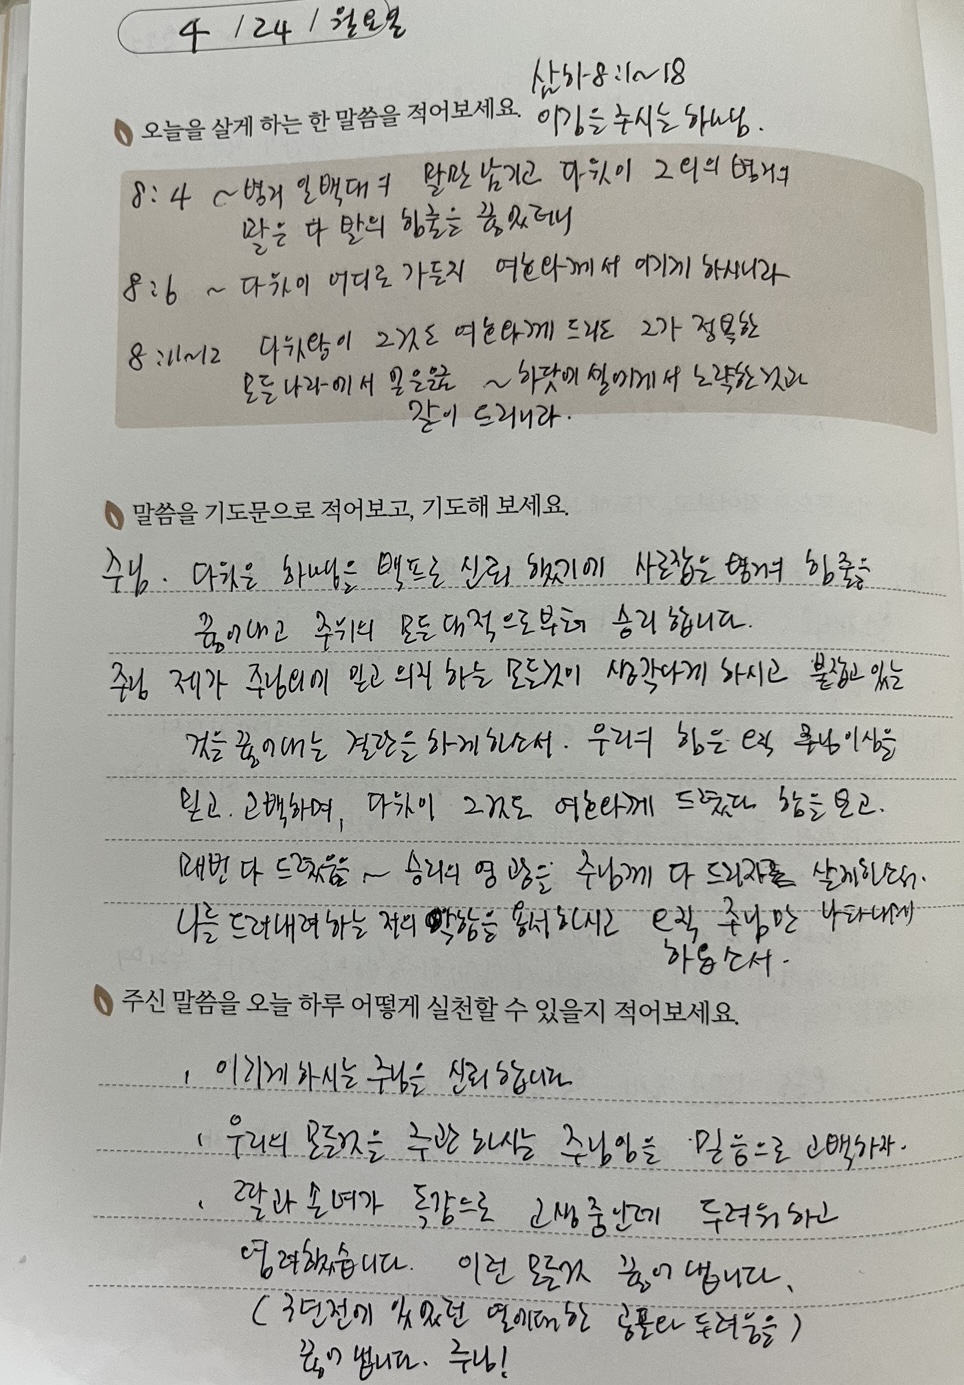 4 / 24 / 월요일
삼하 8:1~18
오늘을 살게 하는 한 말씀을 적어보세요.
이김을 주시는 하나님.
8:4 ~병거 일백대의 말만 남기고 다윗이 그 외의 병거의
말은 다 발의 힘줄을 끊었더니
8:6 ~ 다윗이 어디로 가든지 여호와께서 이기게 하시니라
8:11~12 다윗왕이 그것도 여호와께 드리되 그가 정복한
모든 나라에서 얻은 은금 ~하닷에셀에게서 노략한 것과
같이 드리니라.
말씀을 기도문으로 적어보고, 기도해 보세요.
주님. 다윗은 하나님을 백프로 신뢰 했기에 사로잡은 병거의 힘줄을
끊어내고 주위의 모든 대적으로부터 승리 합니다.
주님 제가 주님외에 믿고 의지 하는 모든것이 생각나게 하시고 붙잡고 있는
것을 끊어내는 결단을 하게 하소서. 우리의 힘은 오직 주님이심을
믿고. 고백하며, 다윗이 그것도 여호와께 드렸다 함을 보고.
매번 다 드렸음을 ~ 승리의 영광을 주님께 다 드리자로 살게하소서.
나를 드러내려 하는 저의 악함을 용서하시고 오직 주님만 나타내게
하옵소서.
주신 말씀을 오늘 하루 어떻게 실천할 수 있을지 적어보세요.
, 이기게 하시는 주님을 신뢰 합니다
, 우리의 모든것을 주관 하시는 주님임을 믿음으로 고백하자.
, 딸과 손녀가 독감으로 고생중인데 두려워하고
염려했습니다. 이런 모든것 끊어 냅니다.
(3년전에 있었던 열에대한 공포와 두려움을)
끊어 냅니다. 주님!